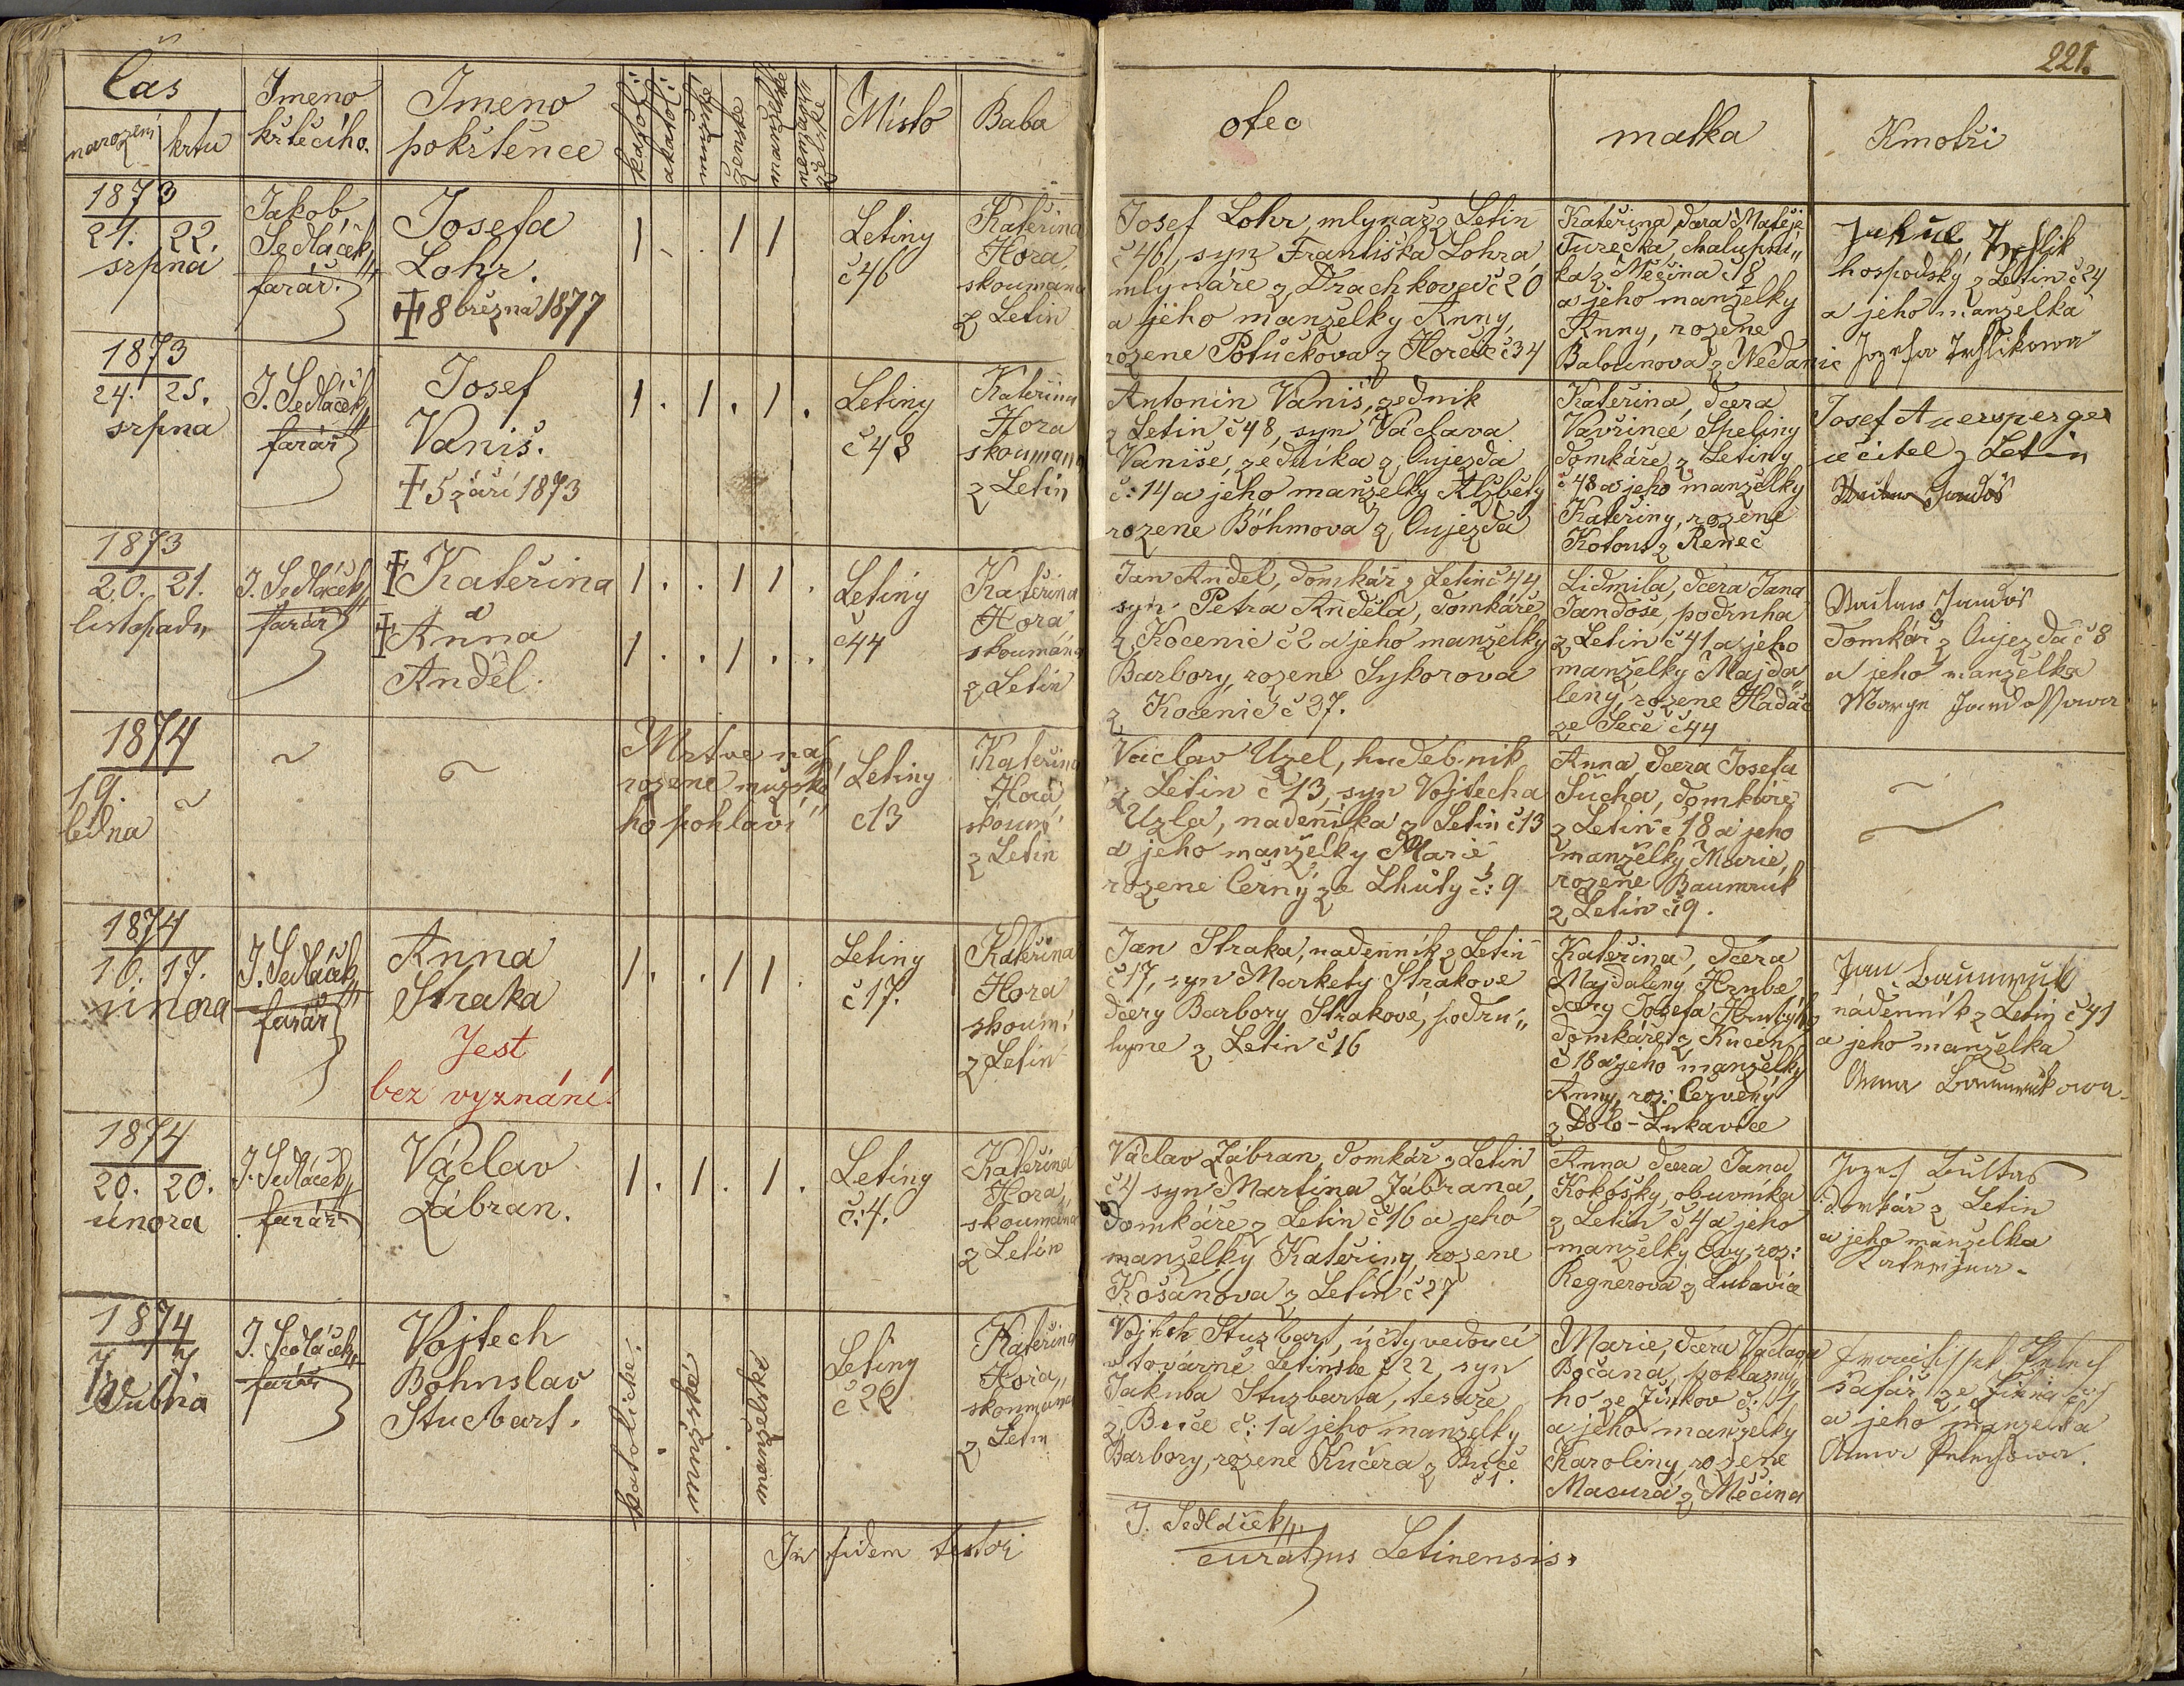 221.
Čas
narození
krtu
Jmeno
křtěcího.
Jmeno
pokřtěnce
katol:
akatol:
mužské
ženské
manželské
nemanželské
Místo
Baba
otec
matka
Kmotři
1873
21. 22.
srpna
Jakob
Sedláček
farář.
Josefa
Lohr.
8 března 1877
1 . . 1 1
Letiny
č 46
Kateřina
Hora
skoumaná
z Letin
Josef Lohr, mlynář z Letin
č 46, syn Františka Lohra,
mlynáře z Drachkova č 20
a jeho manželky Anny,
rozene Potučkova z Horčic č 34
Kateřina dcera Matěje
Turečka chalupní„
ka z Měčina č 8
a jeho manželky
Anny, rozene
Balounova z Nedanic
Jakub
hospodský z Letin č 24
a jeho manželka
Jozefa
1873
24. 25.
srpna
J. Sedláček
farář
Josef
Vaniš.
5 září 1873
1 . 1 . 1 .
Letiny
č 48
Kateřina
Hora
skoumana
z Letin
Antonin Vaniš, zednik
z Letin č 48, syn Václava
Vaniše, zednika z Oujezda
č: 14 a jeho manželky Alžběty
rozene Böhmova z Oujezda
Kateřina, dcera
Vavřince Speliny
domkáře z Letiny
č 48 a jeho manželky
Kateřiny, rozene
Kotous z Reneč
Josef Auersperger
učitel z Letin
Jandoš
1873
20. 21.
listopadu
J. Sedláček
farář
Kateřina
a
Anna
Anděl.
1 . . 1 1 .
1 . . 1 . .
Letiny
č 44
Kateřina
Hora
skoumána
z Letin
Jan Anděl, domkář z Letin č 44
syn Petra Anděla, domkáře
z Kocenic č 2 a jeho manželky
Barbory, rozene Sykorova
z Kocenic č 37.
Lidmila, dcera Jana
Jandoše, podruha
z Letin č 41 a jeho
manželky Majda„
leny, rozene Hadač
ze Seče č 44
Václaw Jandoš
domkář z Oujezda č 8
a jeho manželka
Jandossowa
1874
19.
ledna
Mrtve na„
rozene mužské„
ho pohlaví
Letiny
č 13
Kateřina
Hora
skoum:
z Letin
Václav Uzel, hudebnik
z Letin č 13, syn Vojtecha
Uzla, nadeníka z Letin č 13
a jeho manželky Marie,
rozene Černý ze Lhůty č: 9
Anna dcera Josefa
Sucha, domkáře
z Letin č 18 a jeho
manželky Marie,
rozene Baumruk
z Letin č 9.
1874
16. 17.
unora
J. Sedláček
farář
Anna
Straka
Jest
bez vyznání.
1 . . 1 1 .
Letiny
č 17.
Kateřina
Hora
skoum:
z Letin
Jan Straka, nadenník z Letin
č 17, syn Markety Strakove
dcery Barbory Strakové, podru„
hyne z Letin č 16
Kateřina, dcera
Majdaleny Hrubé
dcery Josefa Hrubýho
domkáře z
č 18 a jeho manželky
Anny, roz: Červený
z Dolo-Lukavice
Jan Baumruk
nádenník z Letin č 41
a jeho manželka
Anna Baumrukowa
1874
20. 20.
února
J. Sedláček
farář
Václav
Zábran.
1 . 1 . 1 .
Letiny
č: 4.
Kateřina
Hora
skoumana
z Letin
Václav Zábran, domkář z Letin
č 4 syn Martina Zábrana,
domkáře z Letin č 16 a jeho
manželky Kateřiny, rozene
Košanova z Letin č 27
Anna dcera Jana
Kokošky, obuvníka
z Letin č 4 a jeho
manželky Evy, roz:
Regnerova z
Jozef Bultas
domkář z Letin
a jeho manželka
1874
7. 7.
dubna
J. Sedláček
farář
Vojtech
Bohuslav
Stucbart.
katolické.
mužské.
manželské
Letiny
č 22
Kateřina
Hora
skoumana
z Letin
Vojtech Stuzbart, účty vedoucí
v továrně Letinske č 22, syn
Jakuba Stuzbarta, tesaře
z Buče č: 1 a jeho manželky
Barbory, rozene Kučera z Buče
č 1.
Marie, dcera Václava
Bočana, poklasný„
ho ze Žinkov č:
a jeho manželky
Karoliny, rozene
Macura z Měčina
šafář ze
a jeho manželka
Anna
In fidem testor
J. Sedláček
curatus Letinensis.